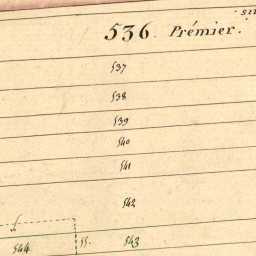 536. Prémier.
537
538
539
540
541
542
544
55.
543